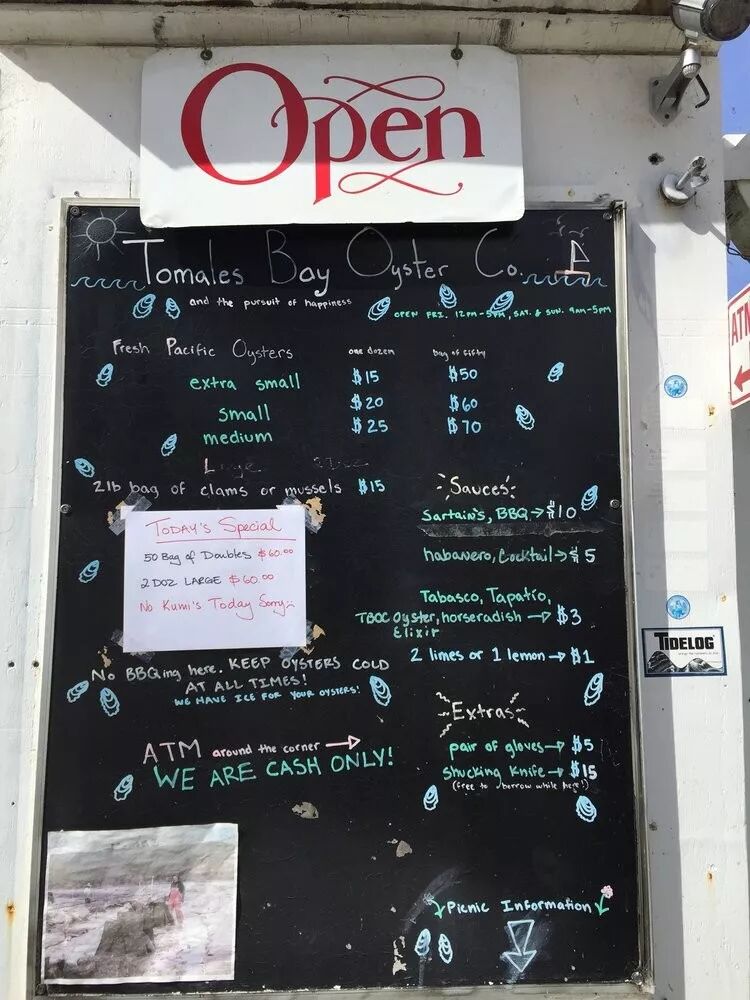 Open
Tomales Bay Oyster Co.
and the pursuit of happiness
OPEN FRI. 12PM-5PM, SAT. & SUN. 9AM-5PM
Fresh Pacific Oysters one dozen bag of fifty
extra small $15 $50
small $20 $60
medium $25 $70
Large
2lb bag of clams or mussels $15
TODAY'S Special
50 Bag of Doubles $60.00
2 DOZ LARGE $60.00
No Kumi's Today Sorry
No BBQing here. KEEP OYSTERS COLD
AT ALL TIMES!
WE HAVE ICE FOR YOUR OYSTERS!
ATM around the corner →
WE ARE CASH ONLY!
Sauces:
Sartain's, BBQ → $10
habanero, Cocktail → $5
Tabasco, Tapatío,
TBOC Oyster, horseradish → $3
Elixir
2 limes or 1 lemon → $1
Extras
pair of gloves → $5
shucking knife → $15
(free to borrow while here!)
Picnic Information
ATM
TIDELOG